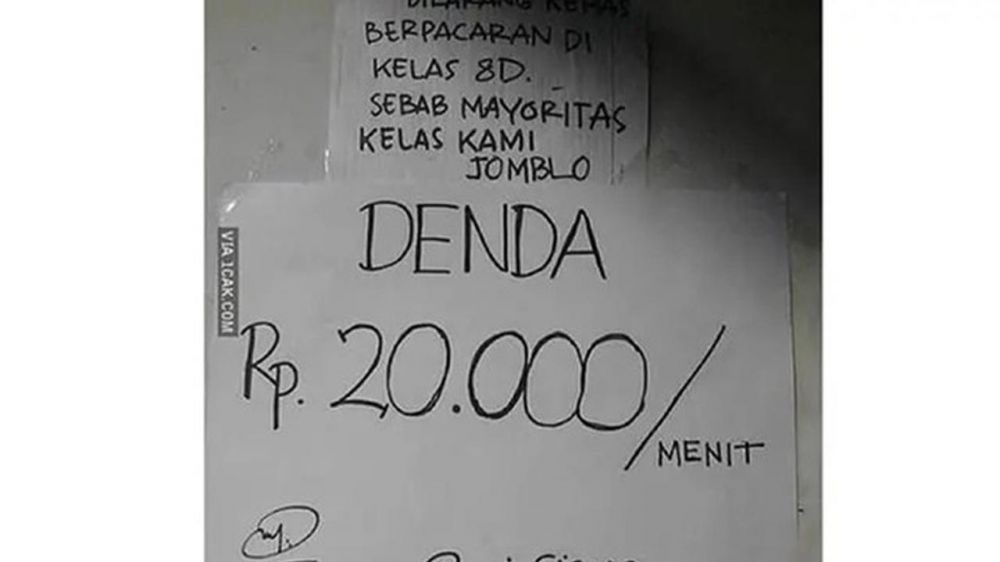 DILARANG KERAS
BERPACARAN DI
KELAS 8D.
SEBAB MAYORITAS
KELAS KAMI
JOMBLO
DENDA
Rp. 20.000/
MENIT
VIA 1CAK.COM